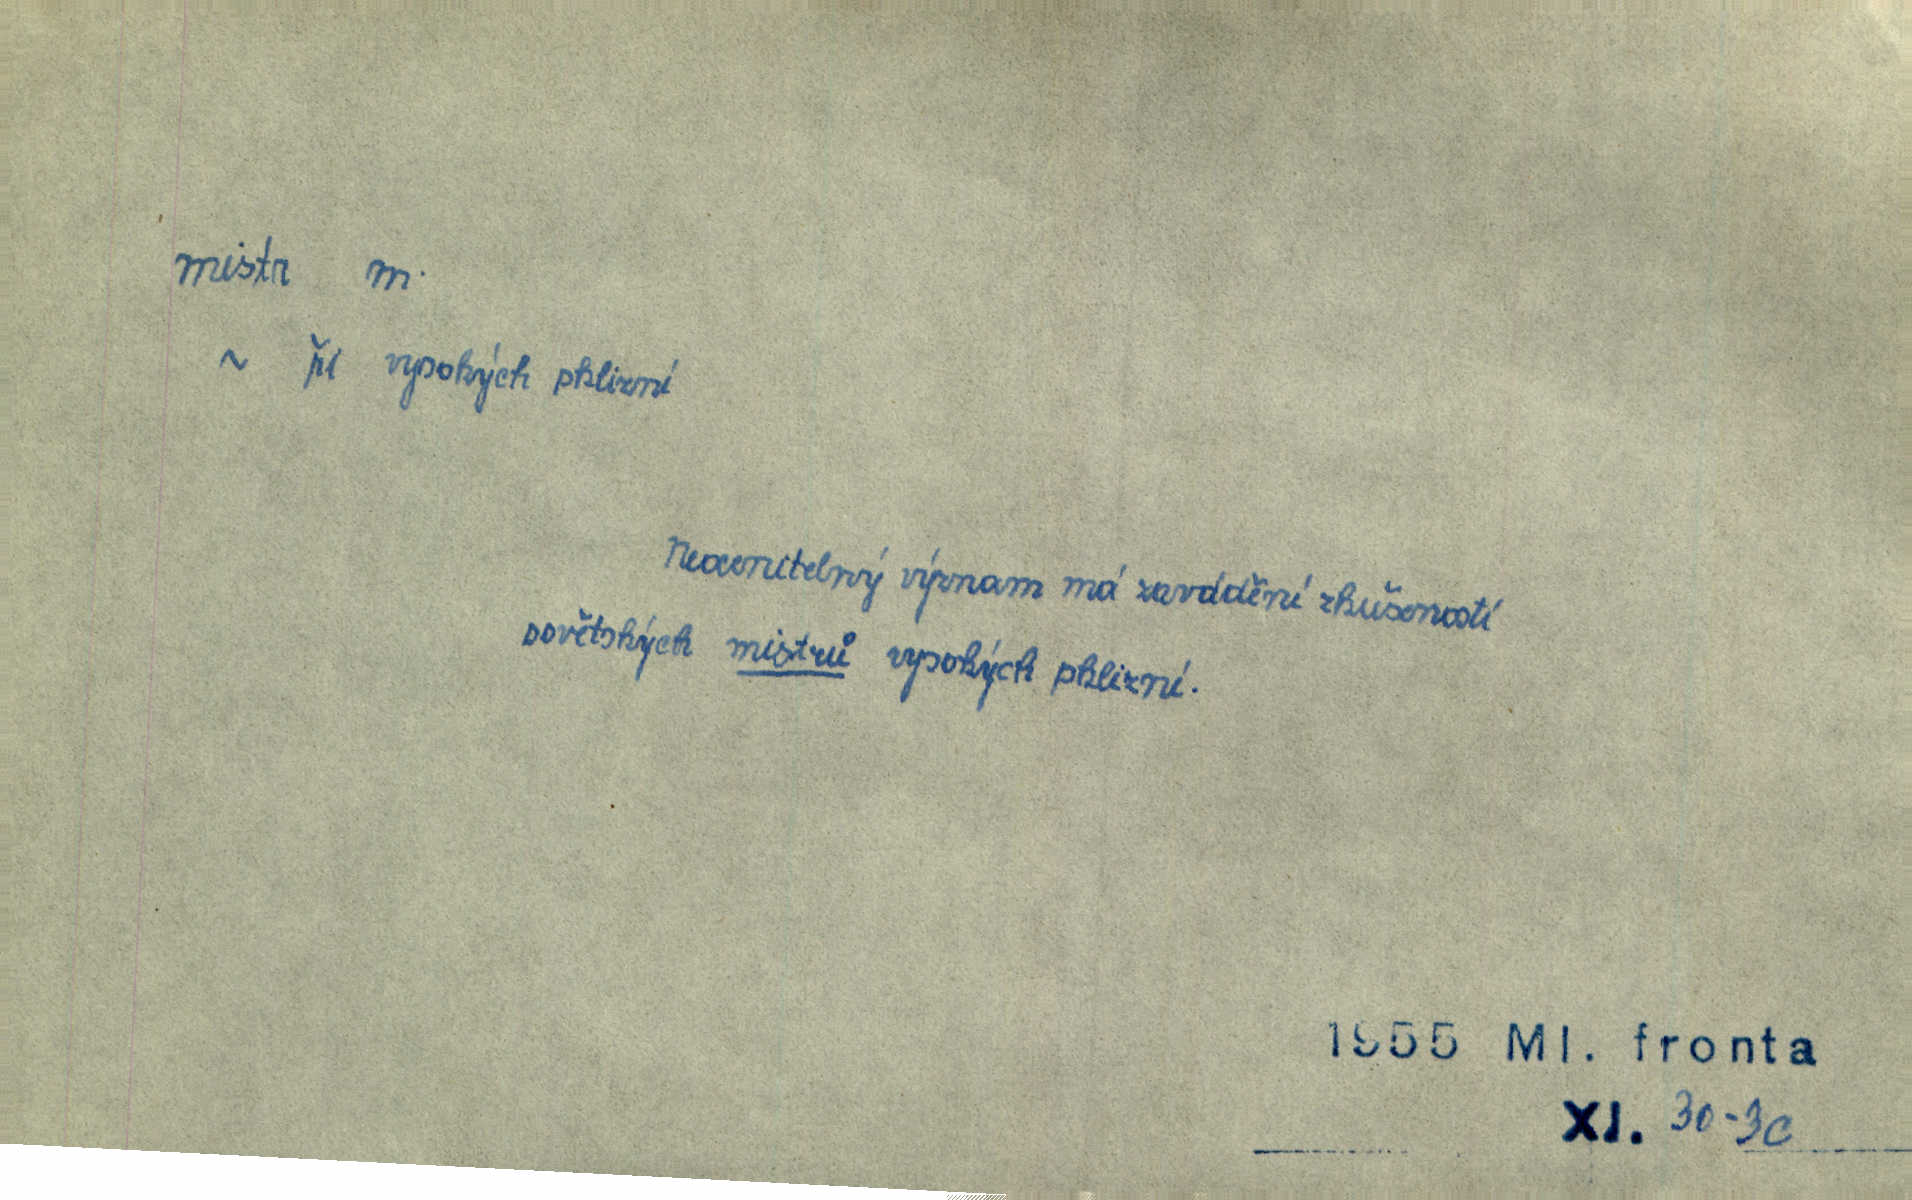 mistr m.
~ při vysokých sklizní
Neocenitelný význam má zavádění zkušeností
sovětských mistrů vysokých sklizní.
1955 Ml. fronta
XI. 30-3c